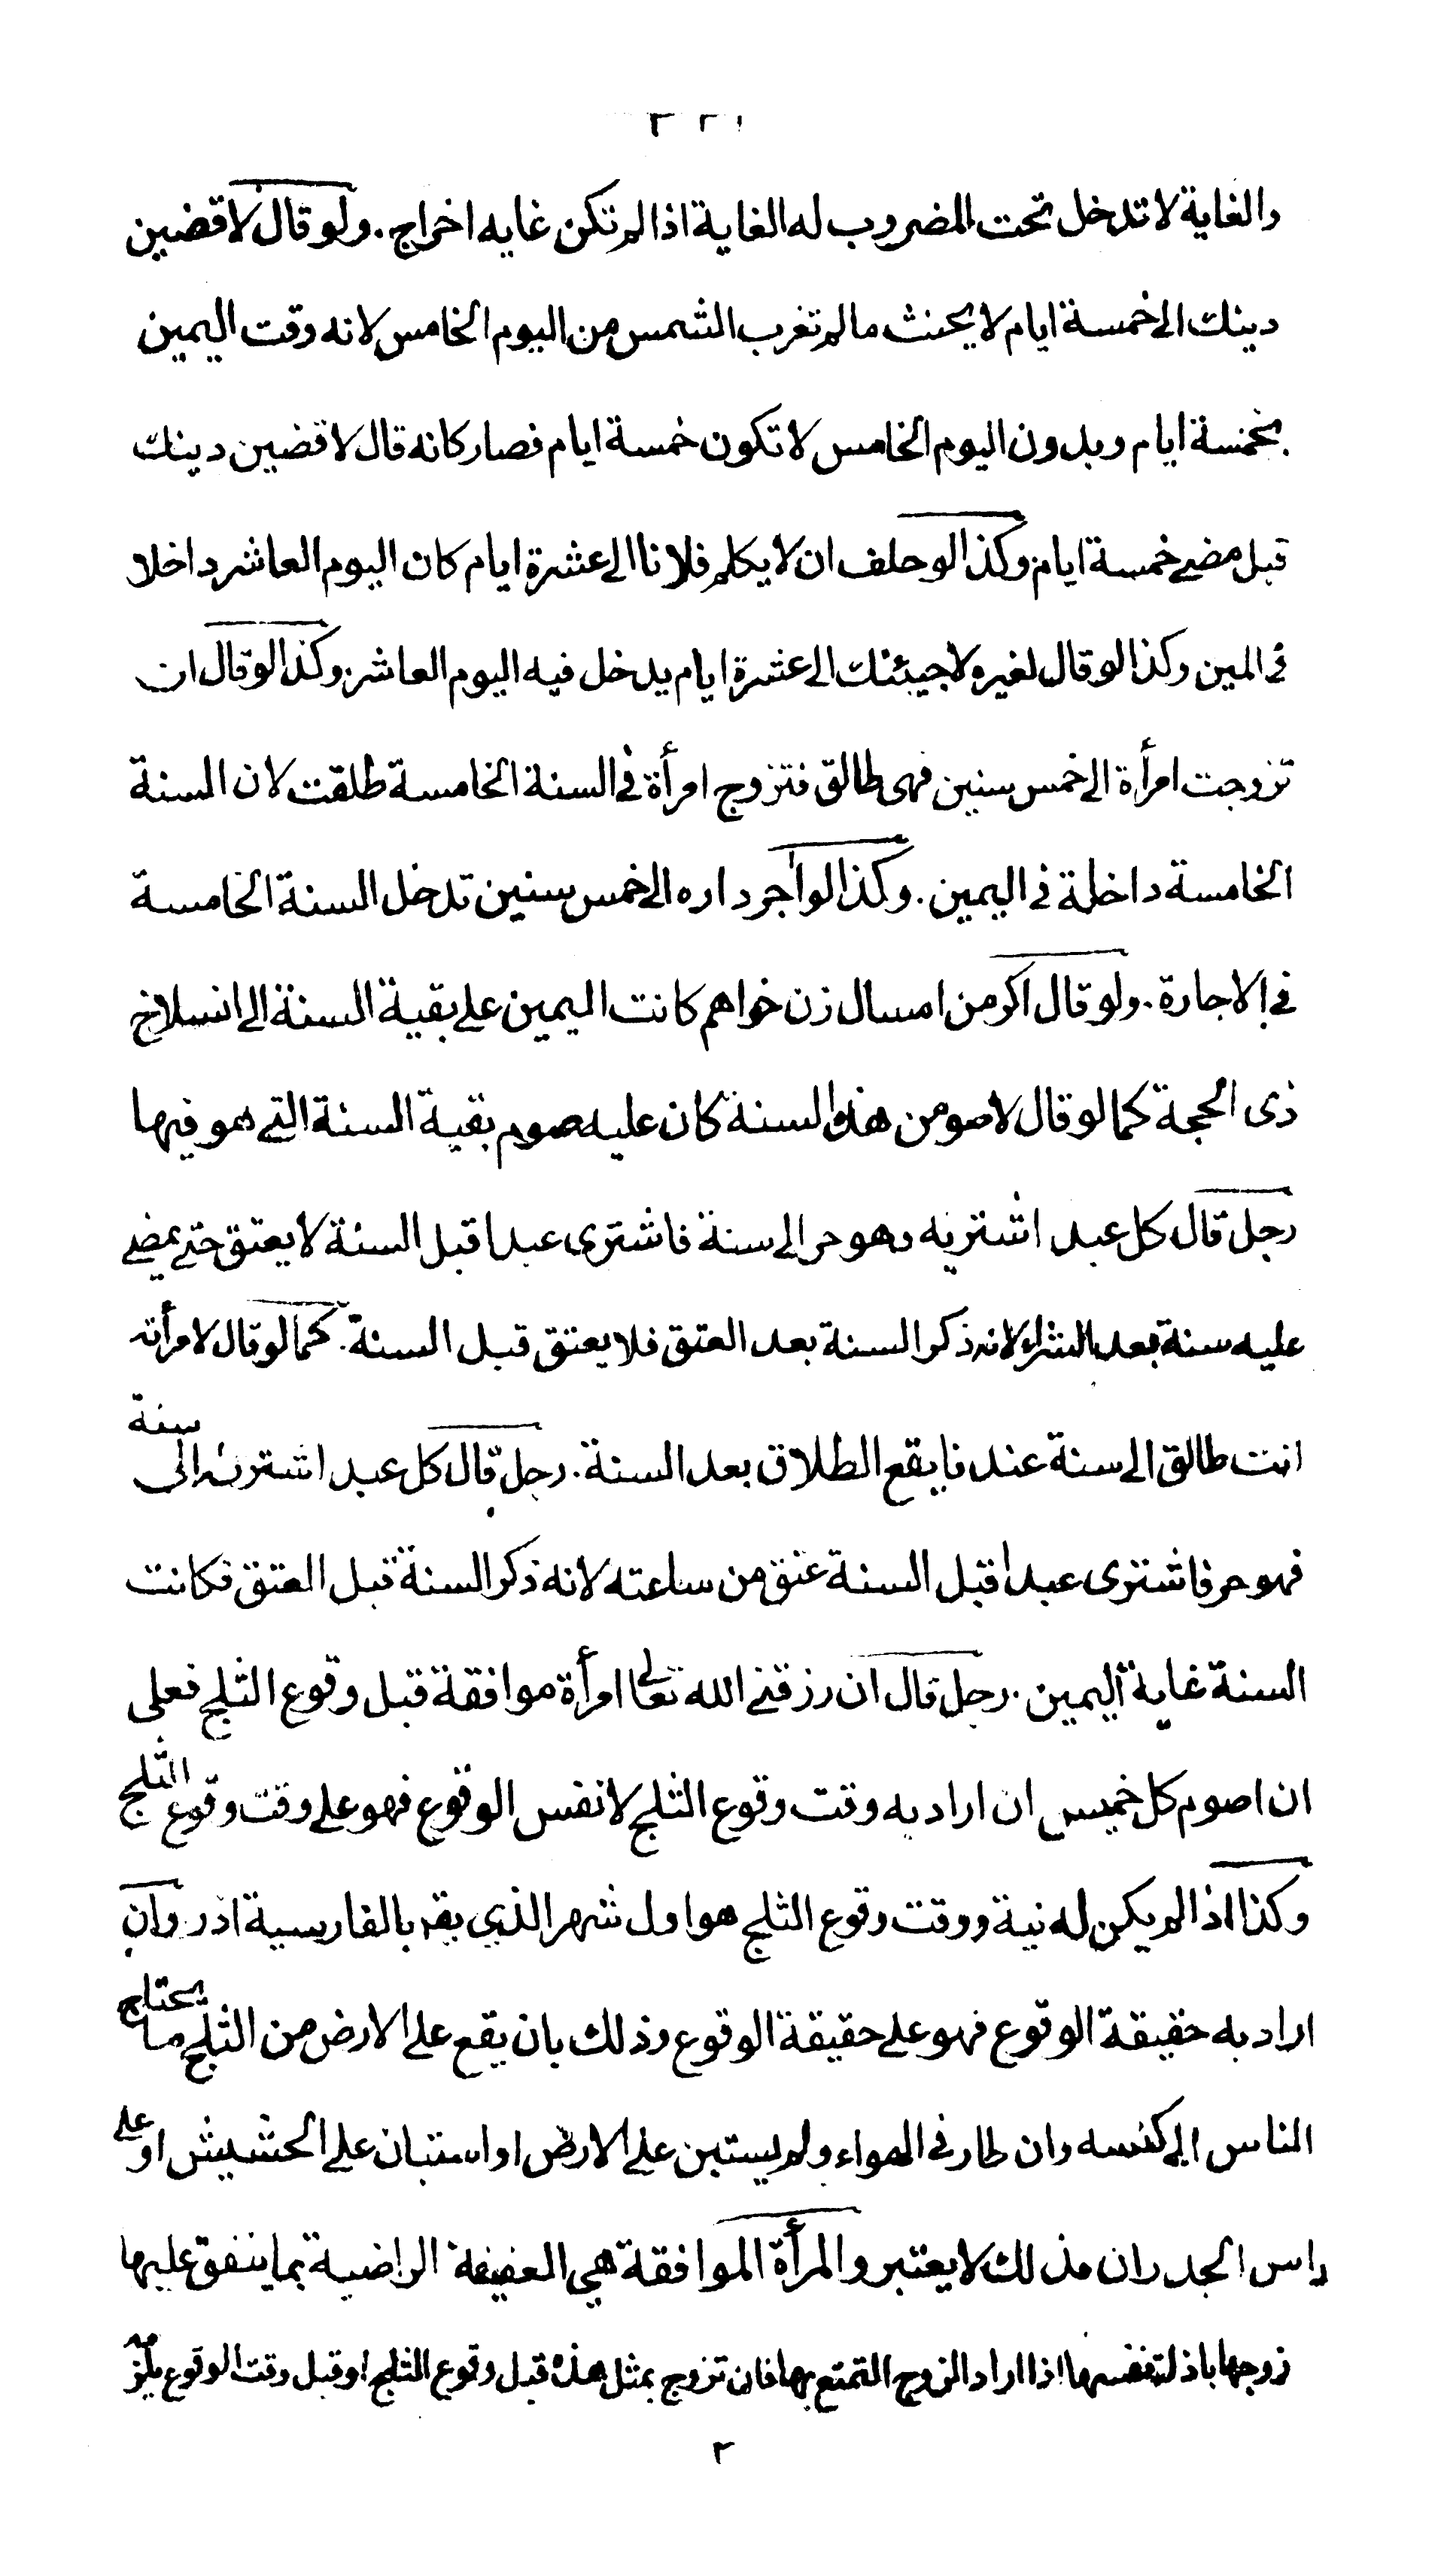 والغاية لا تدخل تحت المضروب له الغاية اذا لم تكن غايه اخراج. ولو قال لاقضين
دينك الى خمسة ايام لا يحنث ما لم تغرب الشمس من اليوم الخامس لانه وقت اليمين
بخمسة ايام وبدون اليوم الخامس لا تكون خمسة ايام فصار كانه قال لاقضين دينك
قبل مضى خمسة ايام وكذا لو حلف ان لا يكلم فلانا الى عشرة ايام كان اليوم العاشر داخلا
فى اليمين وكذا لو قال لغيره لاجيئنك الى عشرة ايام يدخل فيه اليوم العاشر. وكذا لو قال ان
تزوجت امرأة الى خمس سنين فهى طالق فتزوج امرأة فى السنة الخامسة طلقت لان السنة
الخامسة داخلة فى اليمين. وكذا لو اجر داره الى خمس سنين تدخل السنة الخامسة
فى الاجارة. ولو قال اكر من امسال زن خواهم كانت اليمين على بقية السنة الى انسلاخ
ذى الحجة كما لو قال لاصومن هذه السنة كان عليه صوم بقية السنة التى هو فيها
رجل قال كل عبد اشتريه وهو حر الى سنة فاشترى عبدا قبل السنة لا يعتق حتى يمضى
عليه سنة بعد الشراء لانه ذكر السنة بعد العتق فلا يعتق قبل السنة. كما لو قال لامرأته
انت طالق الى سنة عندنا يقع الطلاق بعد السنة. رجل قال كل عبد اشتريه الى سنة
فهو حر فاشترى عبدا قبل السنة عتق من ساعته لانه ذكر السنة قبل العتق فكانت
السنة غاية اليمين. رجل قال ان رزقنى الله تعالى امرأة موافقة قبل وقوع الثلج فعلى
ان اصوم كل خميس ان اراد به وقت وقوع الثلج لا نفس الوقوع فهو على وقت وقوع الثلج
وكذا اذا لم يكن له نية ووقت وقوع الثلج هو اول شهر الذي يقه بالفارسية اذر وان
اراد به حقيقة الوقوع فهو على حقيقة الوقوع وذلك بان يقع على الارض من الثلج ما يحتاج
الناس الى كنسه وان طار فى الهواء ولم يستبن على الارض او استبان على الحشيش او على
راس الجدران فذلك لا يعتبر والمرأة الموافقة هي العفيفة الراضية بما ينفق عليها
زوجها باذلة نفسها اذا اراد الزوج التمتع بها فان تزوج بمثل هذه قبل وقوع الثلج او قبل وقت الوقوع يلزمه
٣